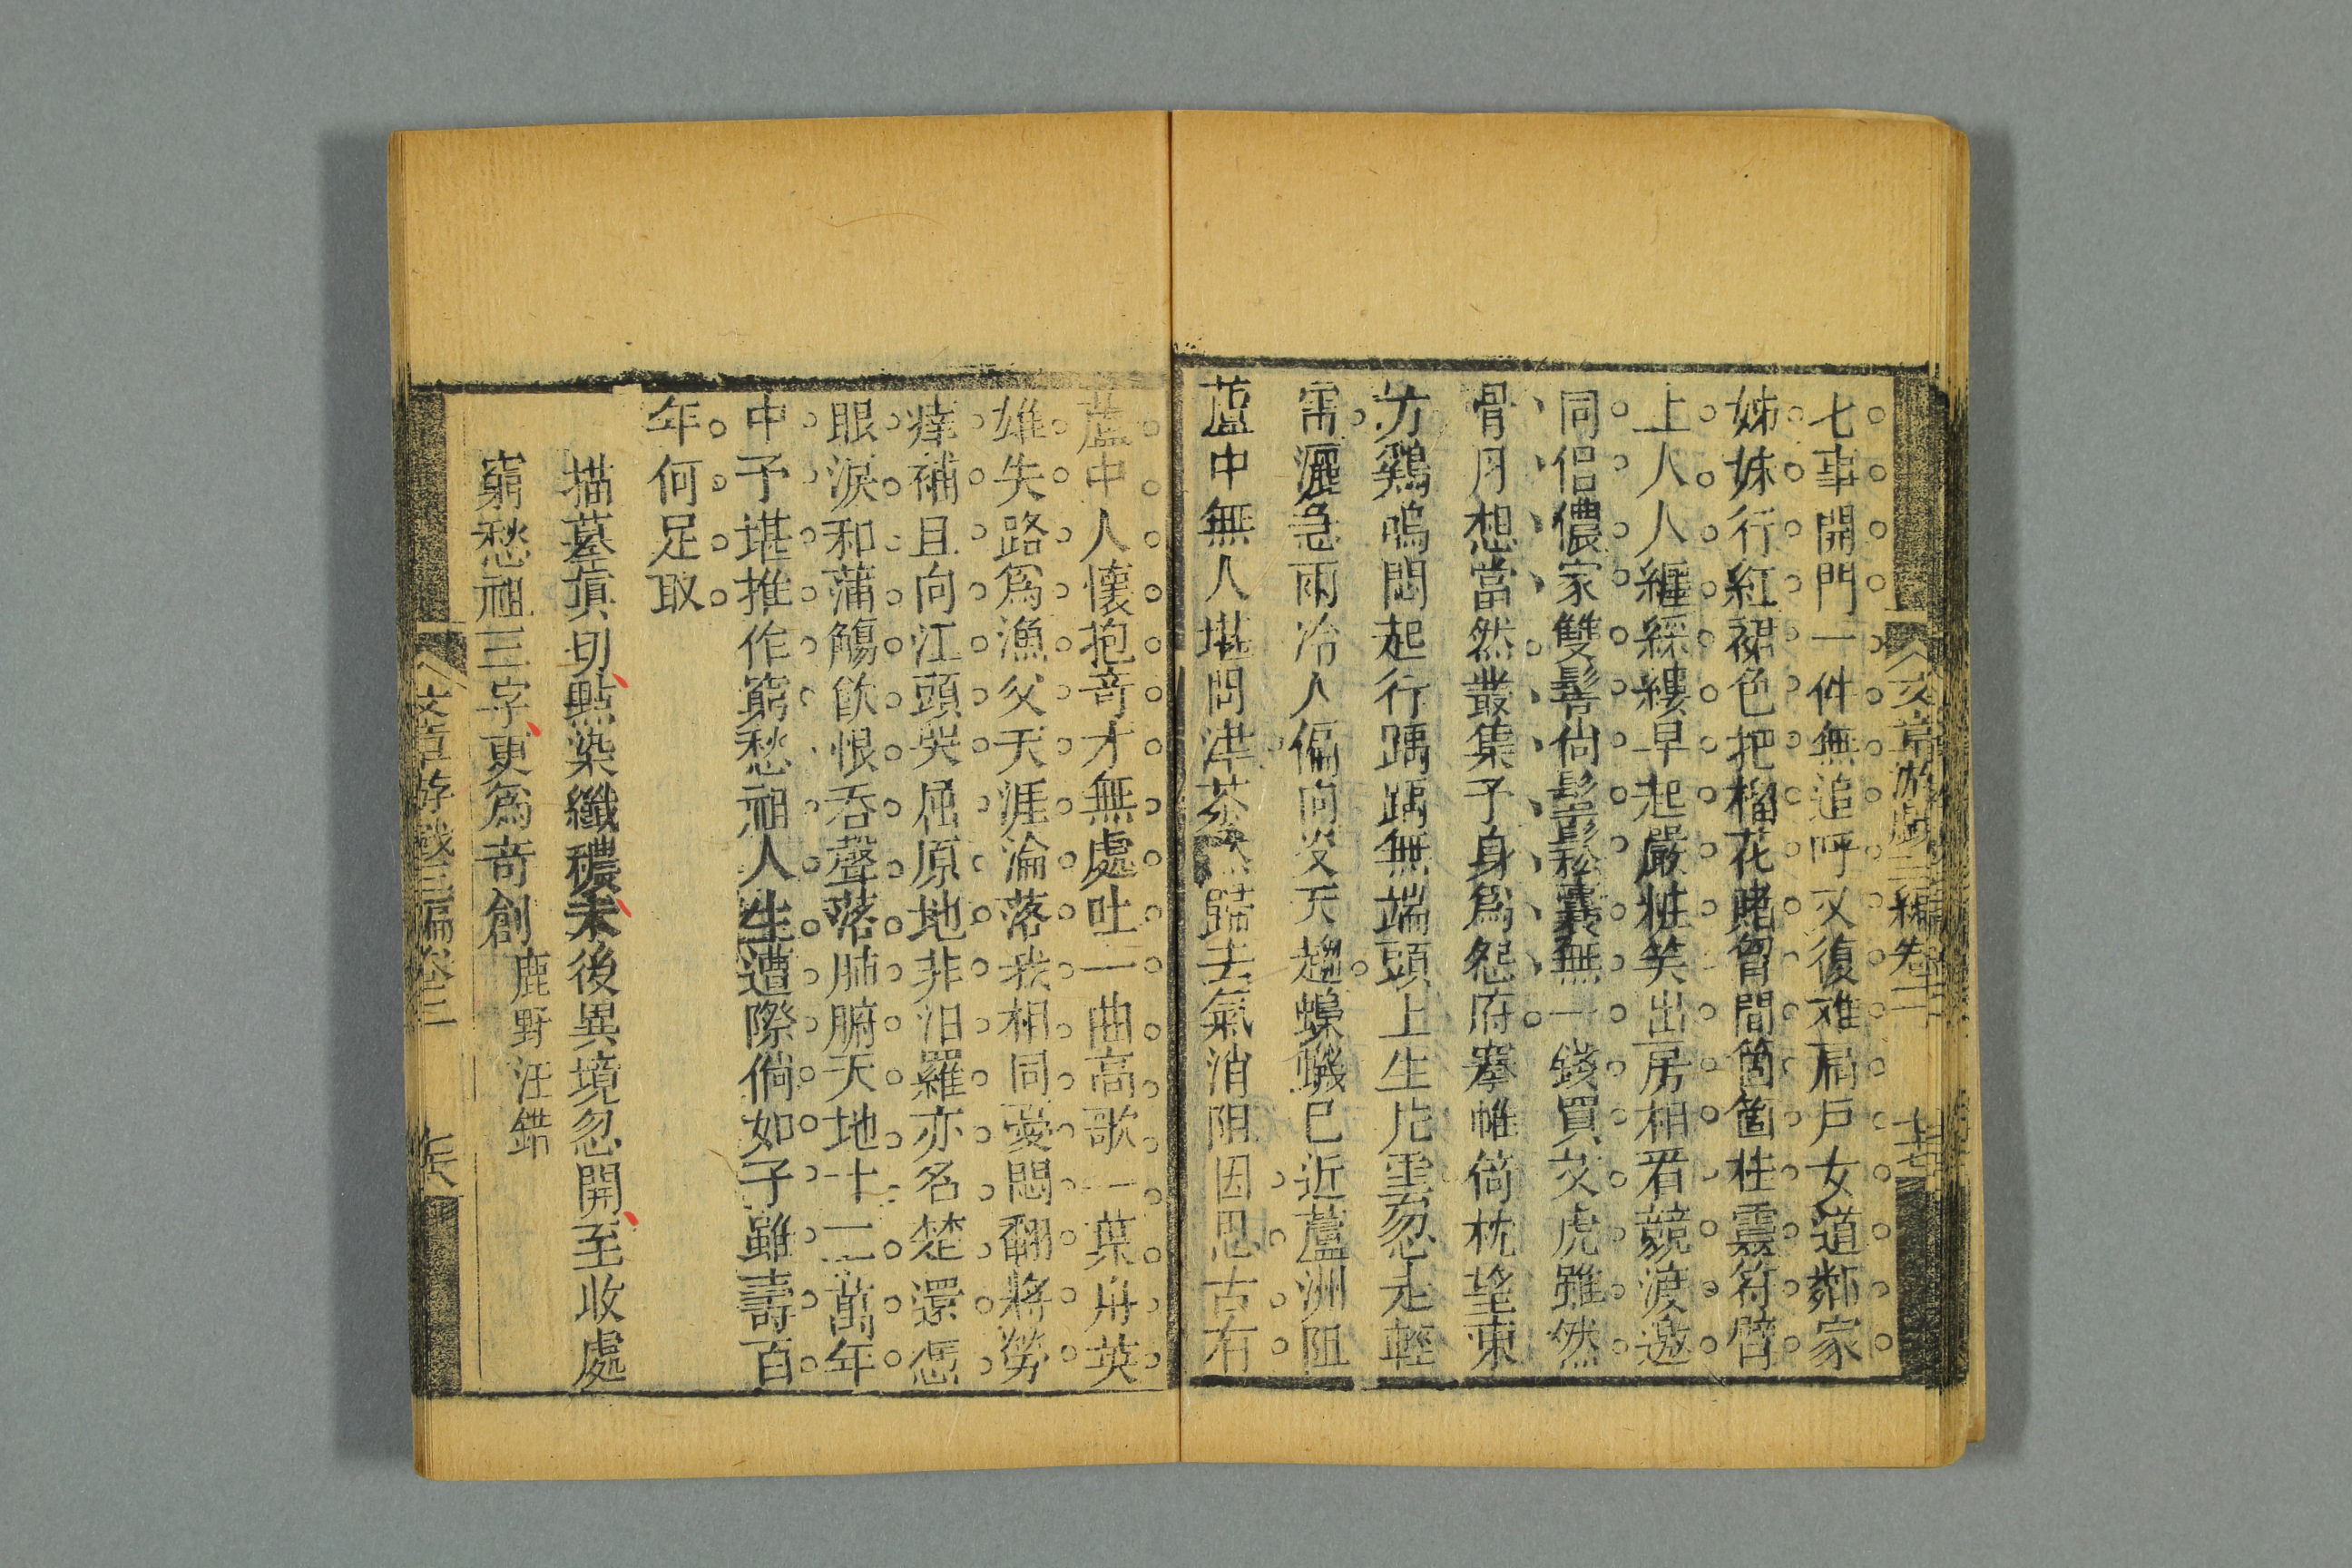 七事開門一件無追呼又復难扃戶女道鄰家
姊妹行紅裙色把榴花賭胷間箇箇桂靈符臂
上人人纏綵縷早起嚴粧笑出房相看競渡邀
同侶儂家雙髻尙鬅鬆囊無一錢買艾虎雖然
骨月想當然叢集予身爲怨府搴帷倚枕望東
方鷄鳴悶起行踽踽無端頭上生片雲忽走輕
雷灑急雨冷人偏向沒天趨蠛蠓已近蘆洲阻
蘆中無人堪問津茶 歸去氣消阻因思古有
蘆中人懷抱奇才無處吐一曲高歌一葉舟英
雄失路爲漁父天涯淪落我相同憂悶翻將勞
痒補且向江頭哭屈原地非汨羅亦名楚還憑
眼淚和蒲觴飲恨呑聲落肺腑天地十二萬年
中予堪推作窮愁祖人生遭際倘如予雖壽百
年何足取
描摹眞切點染纖穠末後異境忽開至收處
窮愁祖三字更爲奇創鹿野汪錯
文章游戲三編卷二
文章游戲三編卷二